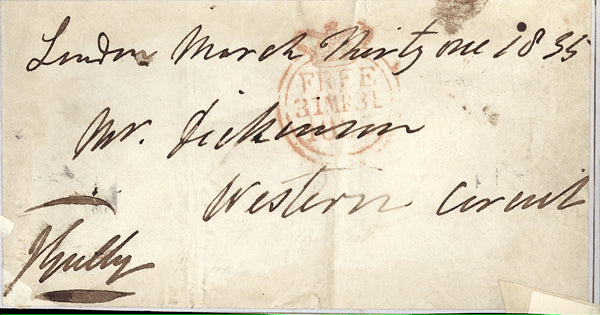 London March Thirty one 1835
FREE
31MR31
Mr. Dickinson
Western Circuit
JGully